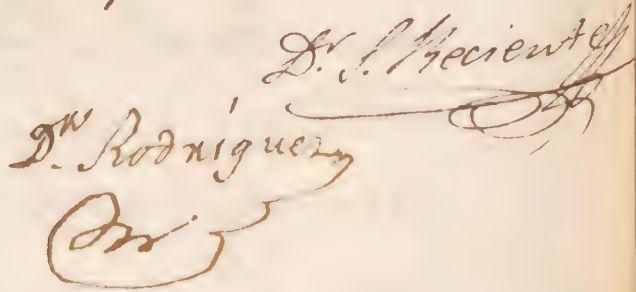 Dr. S. Reciente
Dn. Rodriguez